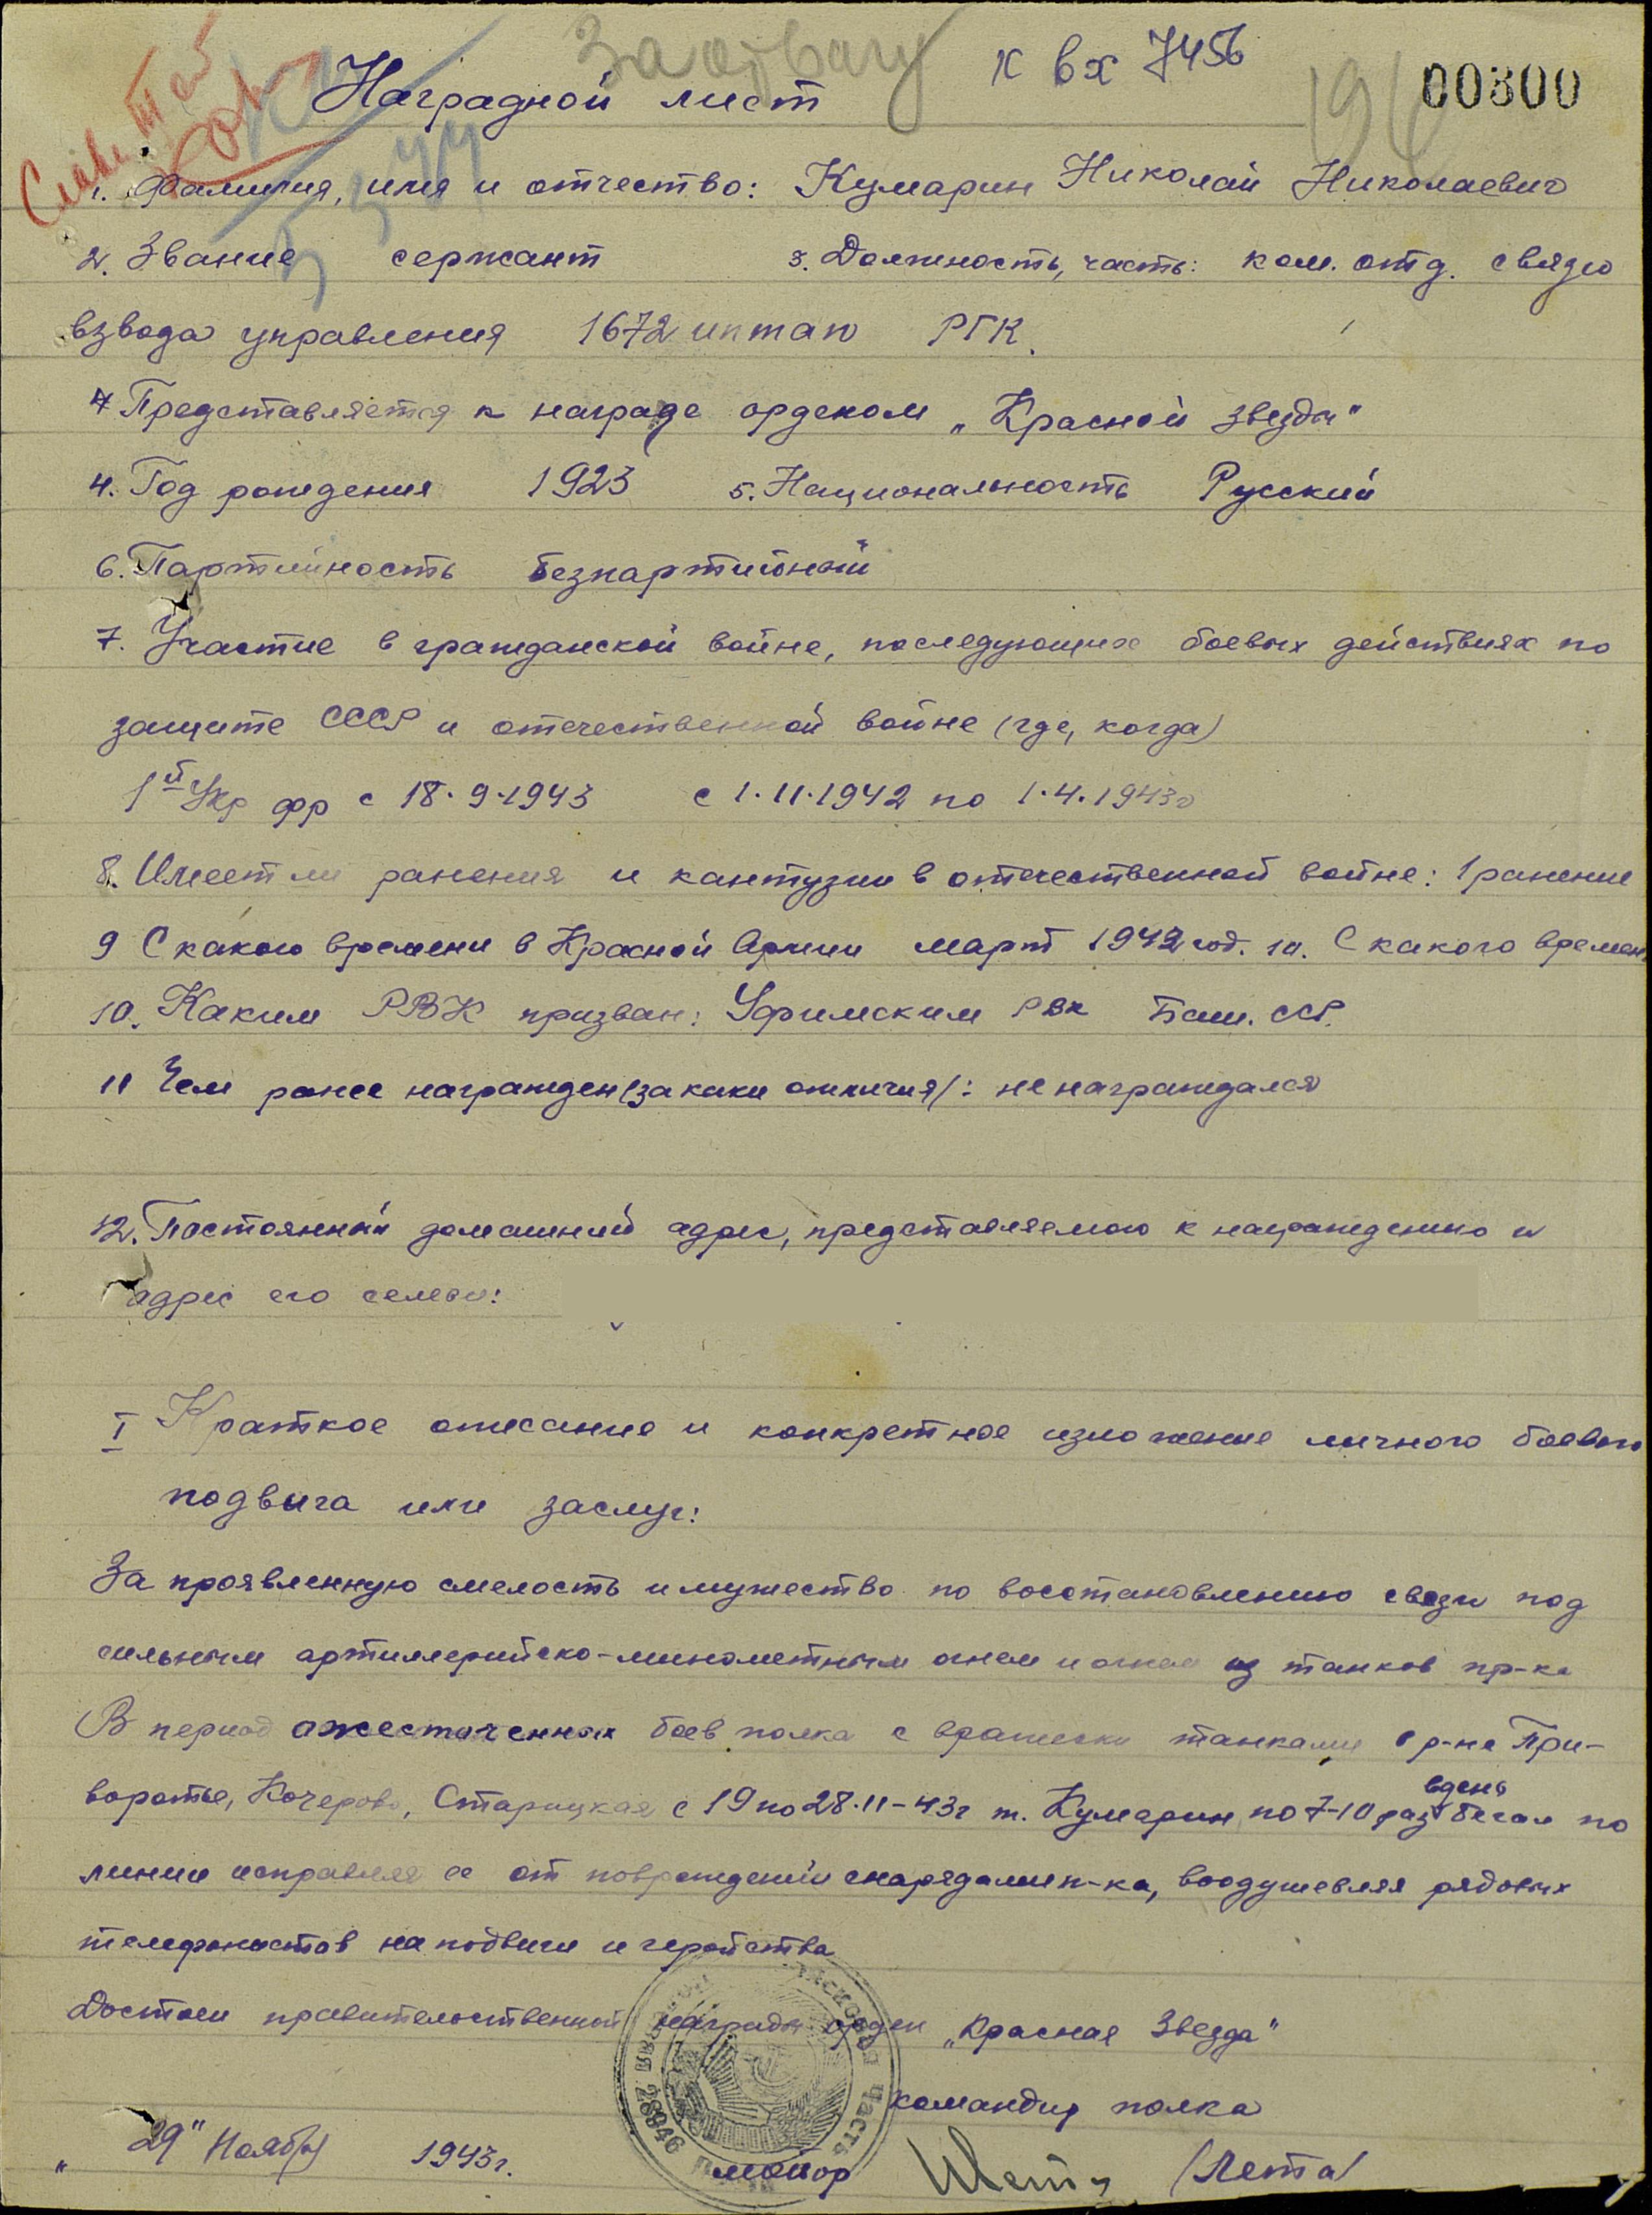 За отвагу к вх 7456
00300
Наградной лист
1. Фамилия, имя и отчество: Кумарин Николай Николаевич
2. Звание сержант 3. Должность, часть: ком. отд. связи
взвода управления 1672 иптап РГК.
Представляется к награде орденом „Красной звезды"
4. Год рождения 1923 5. Национальность Русский
6. Партийность безпартийный
7. Участие в гражданской войне, последующих боевых действиях по
защите СССР и отечественной войне (где, когда)
1й Укр фр с 18.9.1943 с 1.11.1942 по 1.4.1943г
8. Имеет ли ранения и кантузии в отечественной войне: 1 ранение
9 С какого времени в Красной Армии март 1942 год. 10. С какого времен
10. Каким РВК призван: Уфимским РВК Баш. ССР.
11 Чем ранее награжден (за каки отличия/: не награждался
12. Постоянный домашний адрес, представляемого к награждению и
адрес его семьи:
I Краткое описание и конкретное изложение личного боевого
подвига или заслуг:
За проявленную смелость и мужество по восстановлению связи под
сильным артиллерийско-минометным огнем и огнем из танков пр-ка
В период ожесточенных боев полка с вражески танками в р-не При-
воротье, Кочерово, Старицкая с 19 по 28.11-43г т. Кумарин по 7-10 раз в день бегал по
линии исправляя ее от повреждений снарядами п-ка, воодушевляя рядовых
телефонистов на подвиги и геройства
Достоин правительственной награды орден „Красная Звезда"
командир полка
„29" Ноября 1943г. майор (Лета/
28946 Часть